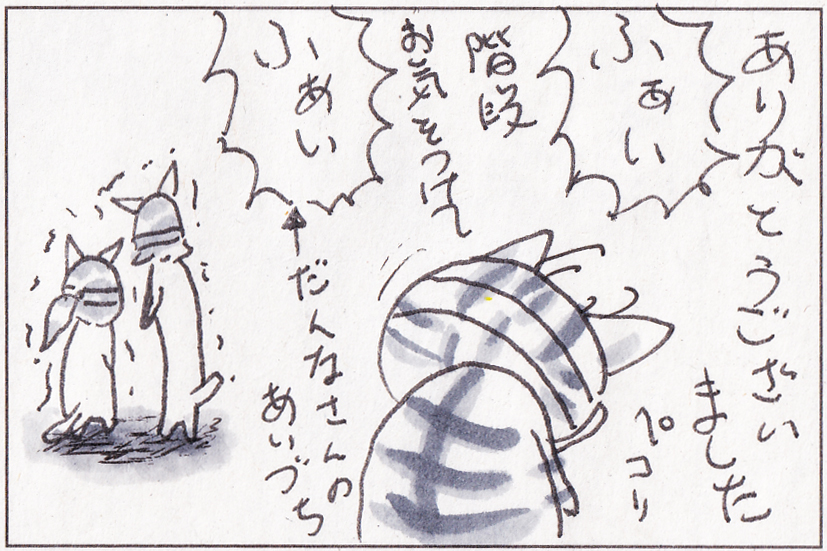 ありがとうござい
ました
ペコリ
ふぁい
階段
お気をつけて
ふぁい
↑だんなさんの
あいづち